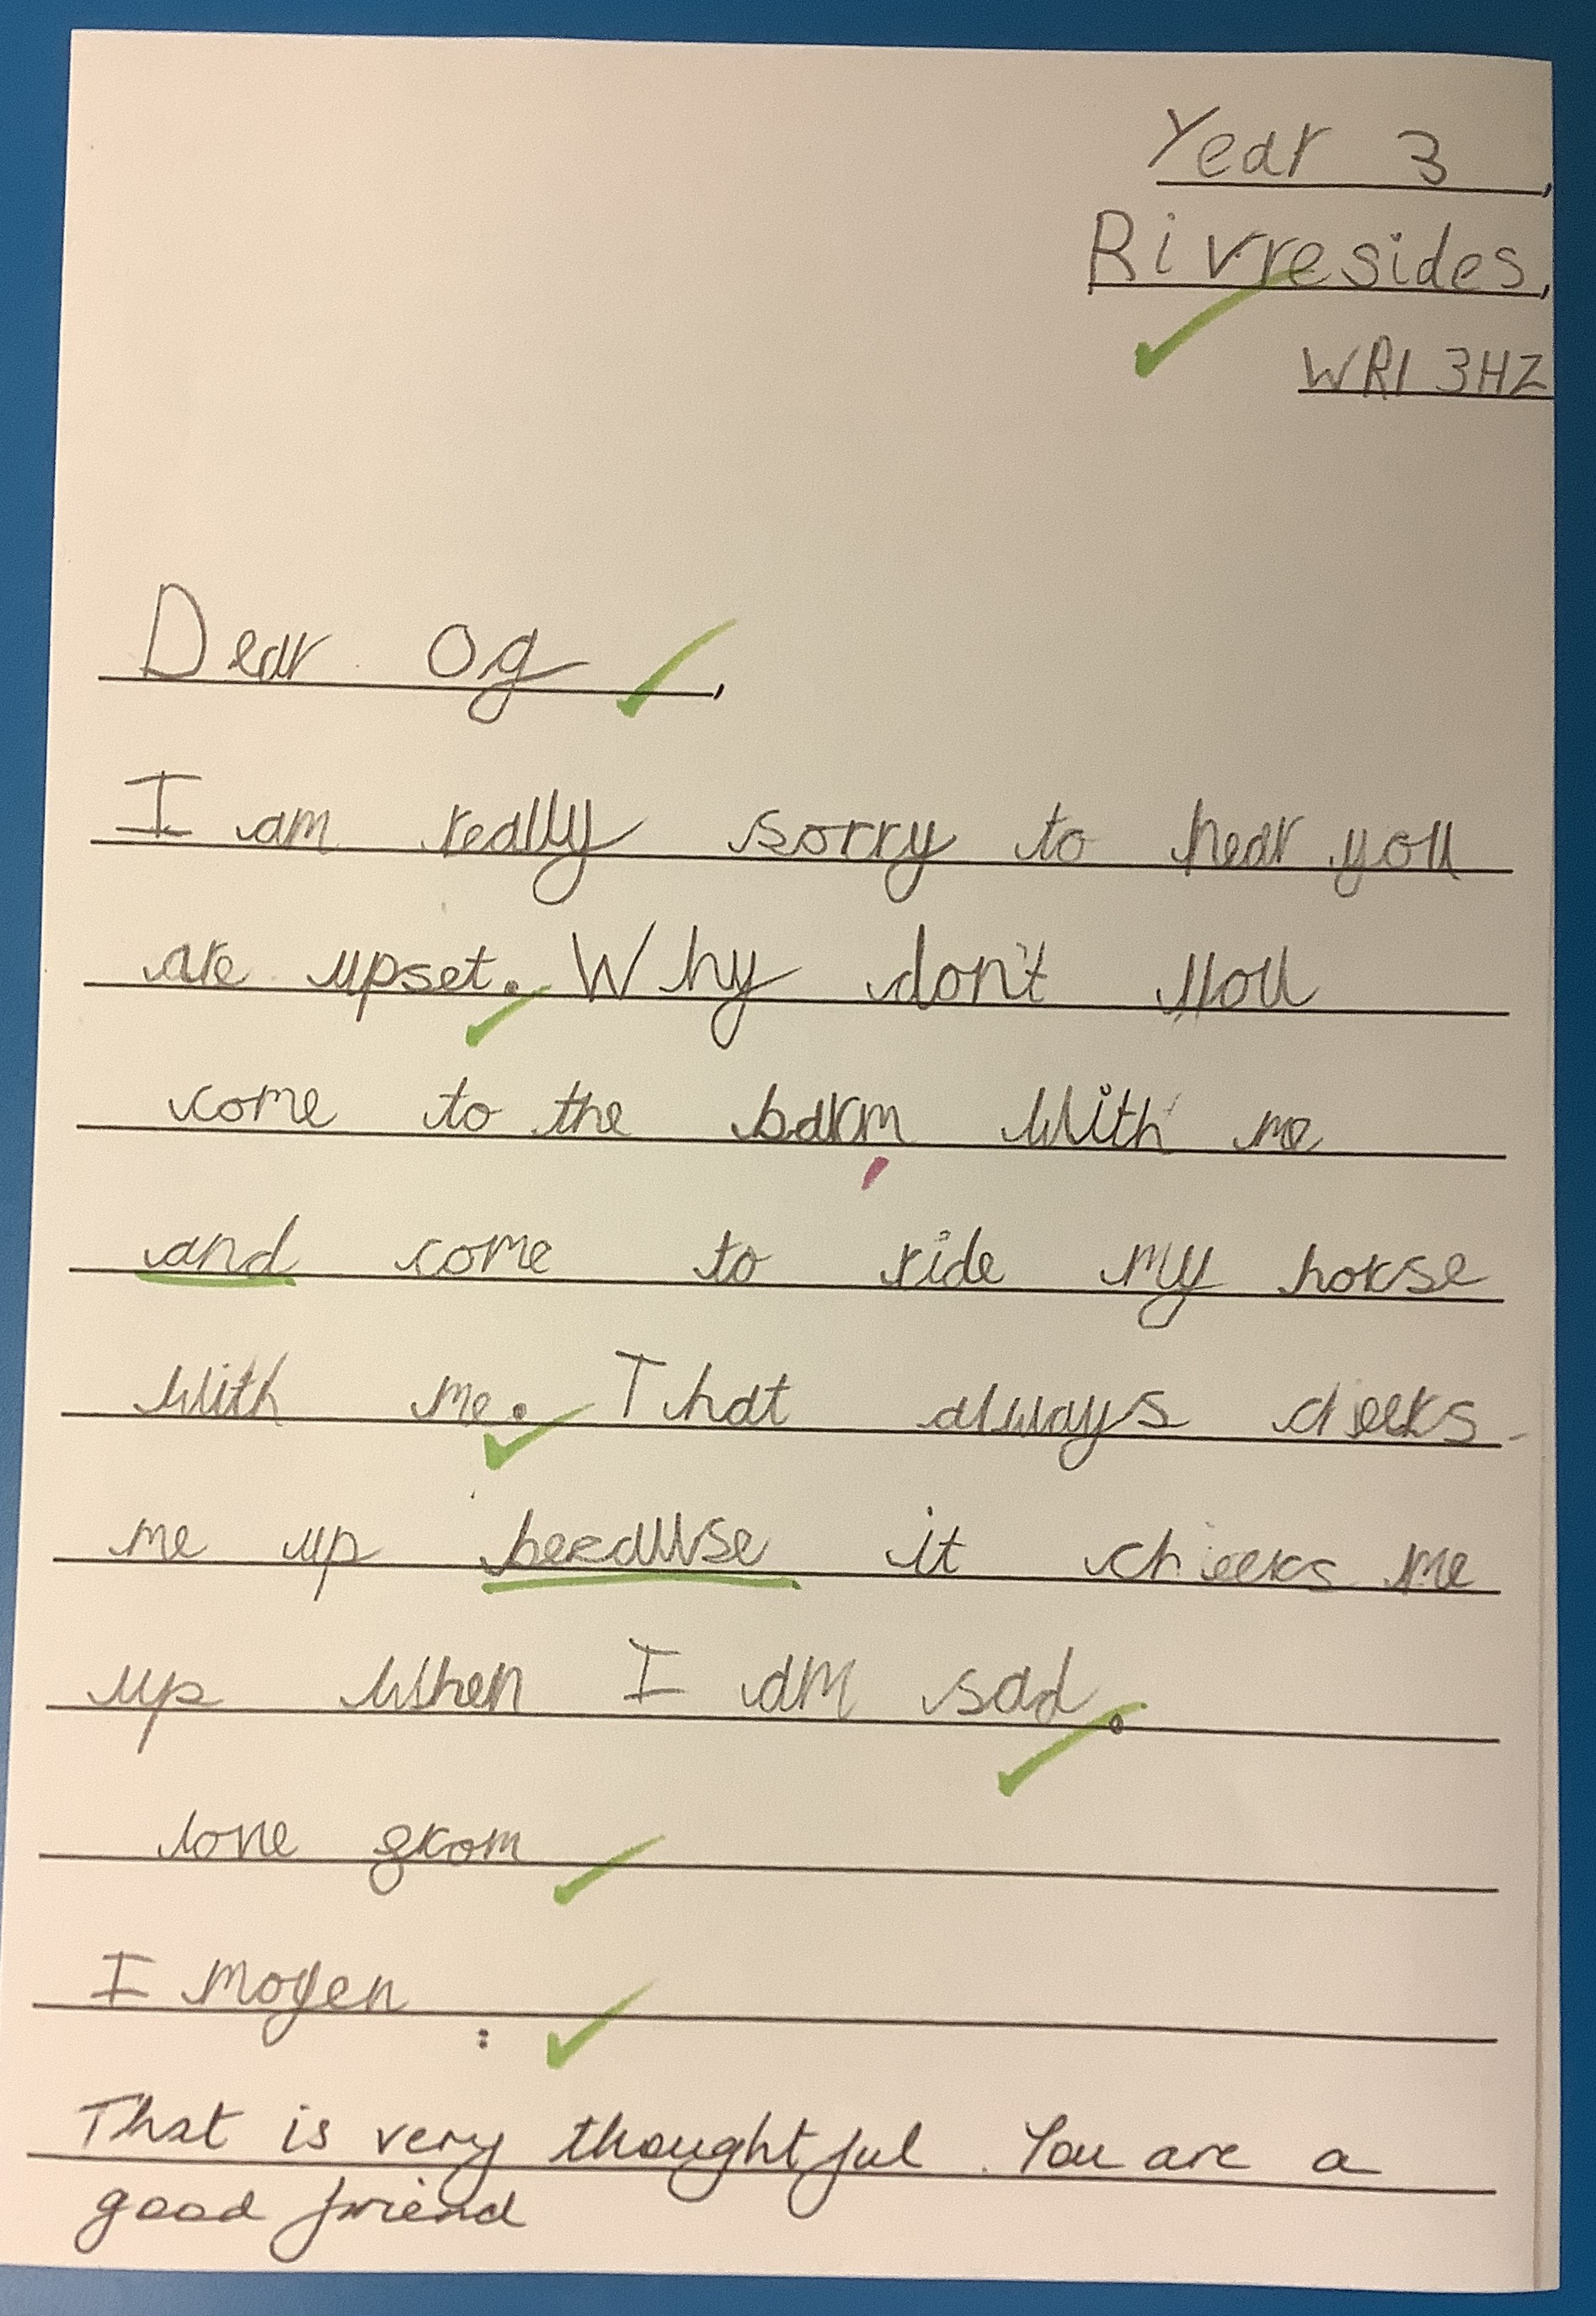 Year 3,
Rivresides,
WR1 3HZ
Dear Og,
I am really sorry to hear you
are upset. Why don't you
come to the barm with me
and come to ride my horse
with me. That always cheers
me up because it cheers me
up when I am sad.
love from
Imogen
That is very thoughtful. You are a
good friend